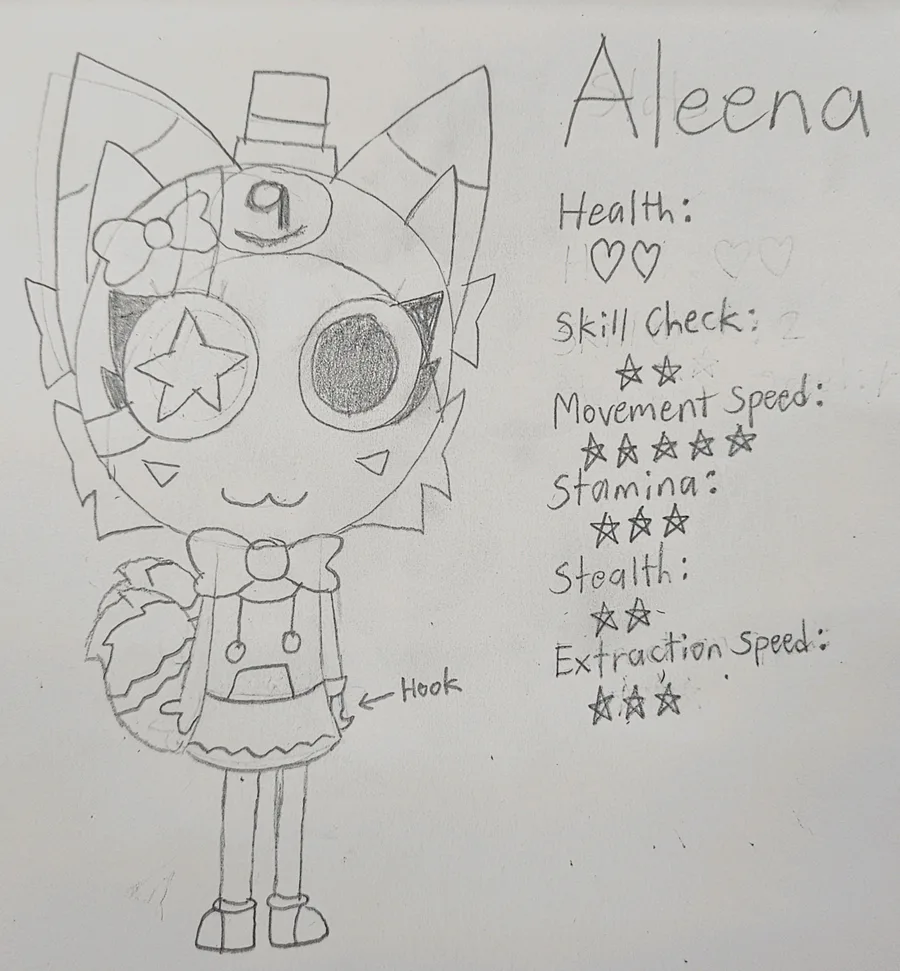 Aleena
9
Health:
♡♡
Skill Check:
☆☆
Movement Speed:
☆☆☆☆☆
Stamina:
☆☆☆
Stealth:
☆☆
Extraction Speed:
☆☆☆
← Hook